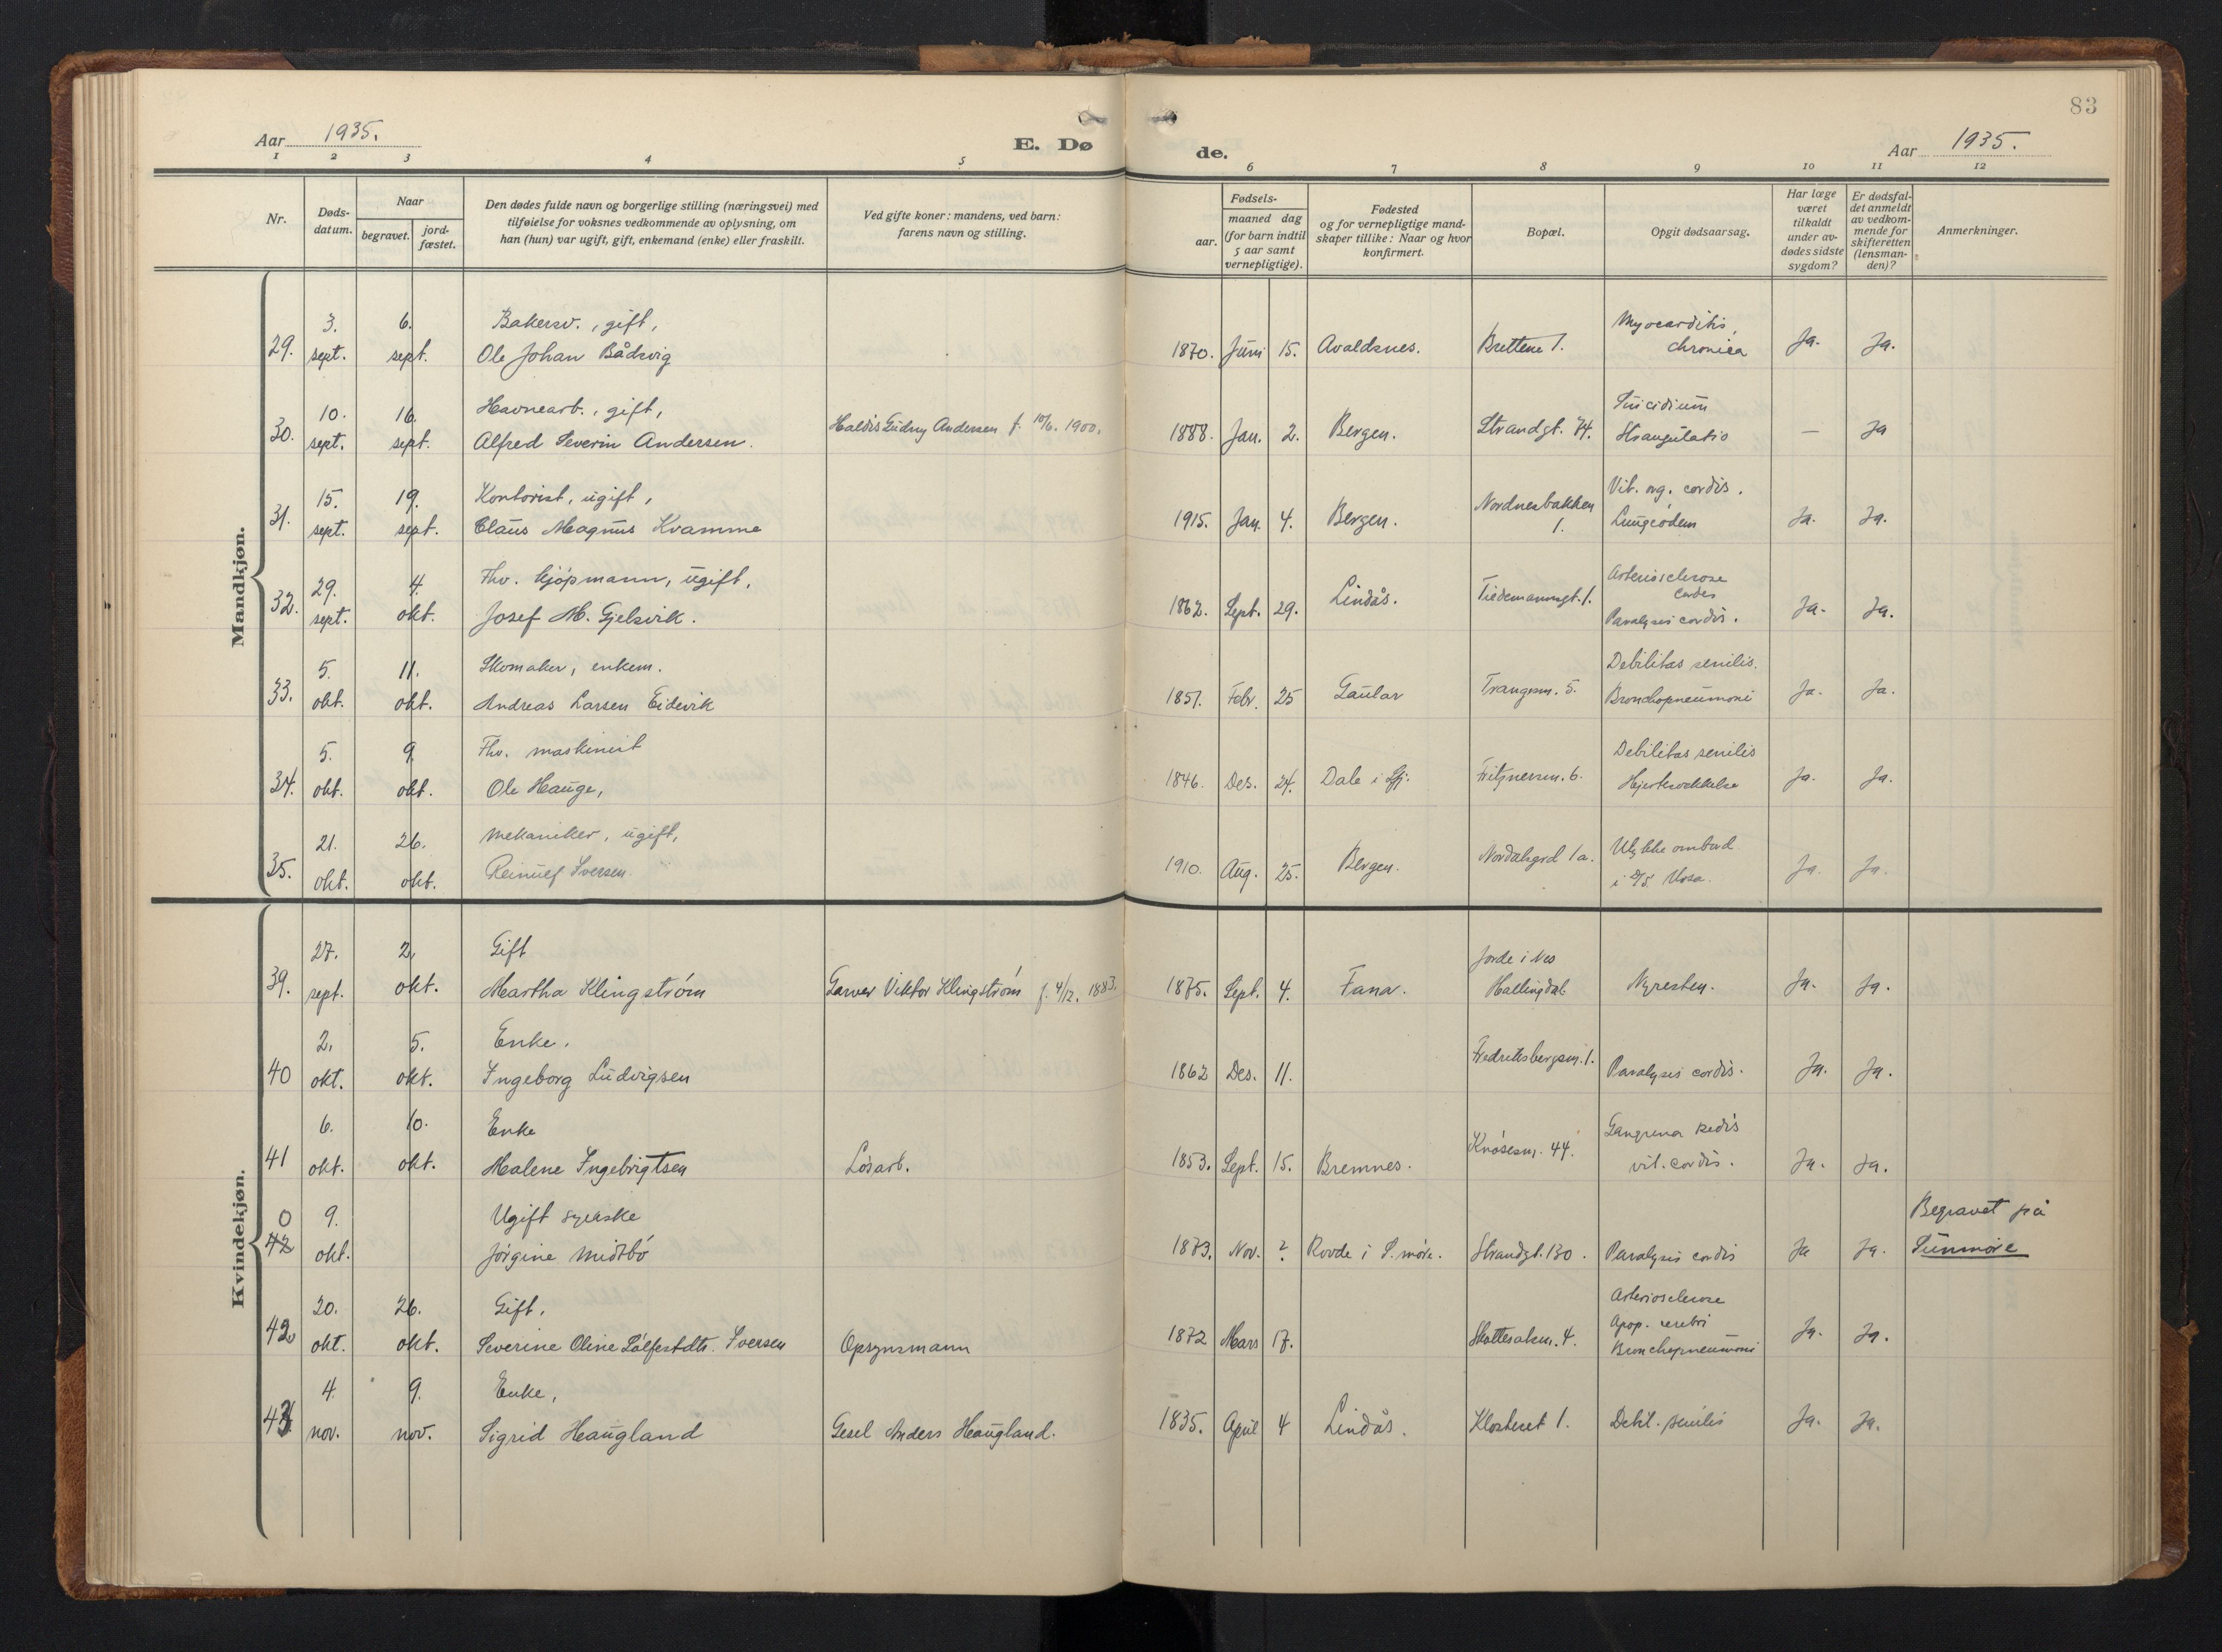 83
Aar 1935.
E. Dø
de.
Aar 1935.
1 2 3 4 5 6 7 8 9 10 11 12
Nr.
Døds-
datum.
Naar
begravet.
jord-
fæstet.
Den dødes fulde navn og borgerlige stilling (næringsvei) med
tilføielse for voksnes vedkommende av oplysning, om
han (hun) var ugift, gift, enkemand (enke) eller fraskilt.
Ved gifte koner: mandens, ved barn:
farens navn og stilling.
Fødsels-
aar.
maaned dag
(for barn indtil
5 aar samt
vernepligtige).
Fødested
og for vernepligtige mand-
skaper tillike: Naar og hvor
konfirmert.
Bopæl.
Opgit dødsaarsag.
Har læge
været
tilkaldt
under av-
dødes sidste
sygdom?
Er dødsfal-
det anmeldt
av vedkom-
mende for
skifteretten
(lensman-
den)?
Anmerkninger.
Mandkjøn.
3. 6. Bakersv., gift, Myocarditis,
29. sept. sept. Ole Johan Bådsvig 1870. Juni 15. Avaldsnes. Brettene 1. chronica Ja. Ja.
10. 16. Havnearb., gift, Suicidium
30. sept. sept. Alfred Severin Andersen. Haldis Gudny Andersen f. 10/6. 1900. 1888. Jan. 2. Bergen. Strandgt. 74. Strangulatio — Ja
15. 19. Kontorist, ugift, Nordnesbakken Vit. org. cordis.
31. sept. sept. Claus Magnus Kvamme 1915. Jan. 4. Bergen. 1. Lungeödem Ja. Ja.
29. 4. Fhv. kjöpmann, ugift, Arteriosclerose
cordis
32. sept. okt. Josef M. Gjelsvik. 1862. Sept. 29. Lindås. Tiedemannsgt. 1. Paralysis cordis. Ja. Ja.
5. 11. Skomaker, enkem. Debilitas senilis.
33. okt. okt. Andreas Larsen Eidevik 1851. Febr. 25 Gaular Trangsm. 5. Bronchopneumoni Ja. Ja.
5. 9. Fhv. maskinist Debilitas senilis
34. okt. okt. Ole Hauge, 1846. Des. 24. Dale i Sfj. Fritznersm. 6. Hjertesvekkelse Ja. Ja.
21. 26. Mekaniker, ugift, Ulykke ombord
35. okt. okt. Reinulf Iversen. 1910. Aug. 25. Bergen. Nordalsgrd 1a. i D/S. Ursa. Ja. Ja.
Kvindekjøn.
27. 2. Gift Jorde i Nes
39. sept. okt. Martha Klingström Garver Viktor Klingström f. 4/12. 1883. 1875. Sept. 4. Fana. Hallingdal Nyresten. Ja. Ja.
2. 5. Enke.
40 okt. okt. Ingeborg Ludvigsen 1862 Des. 11. Fredriksbergsm. 1. Paralysis cordis. Ja. Ja.
6. 10. Enke Gangrena pedis
41 okt. okt. Malene Ingebrigtsen Lösarb. 1853. Sept. 15. Bremnes. Knösesm. 44. vit. cordis. Ja. Ja.
0 9. Ugift syerske Begravet på
42 okt. Jörgine Midtbö 1873. Nov. ? Rovde i S. möre. Strandgt. 130. Paralysis cordis Ja Ja. Sunnmöre
20. 26. Gift, Arteriosclerose
Apop. cerebri
42 okt. okt. Severine Oline Iversen Opsynsmann 1872 Mars 17. Skottesalsm. 4. Bronchopneumoni Ja. Ja.
4. 9. Enke,
43 nov. nov. Sigrid Haugland Gesel Anders Haugland. 1835. April 4 Lindås. Klosteret 1. Debil. senilis Ja. Ja.